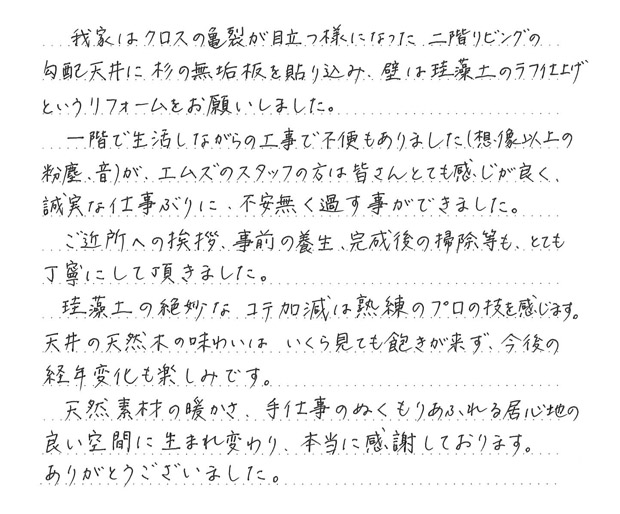 我家はクロスの亀裂が目立つ様になった 二階リビングの
勾配天井に杉の無垢板を貼り込み、壁は珪藻土のラフ仕上げ
というリフォームをお願いしました。
一階で生活しながらの工事で不便もありました(想像以上の
粉塵、音)が、エムズのスタッフの方は皆さんとても感じが良く、
誠実な仕事ぶりに、不安無く過す事ができました。
ご近所への挨拶、事前の養生、完成後の掃除等も、とても
丁寧にして頂きました。
珪藻土の絶妙な コテ加減は熟練のプロの技を感じます。
天井の天然木の味わいは いくら見ても飽きが来ず、今後の
経年変化も楽しみです。
天然素材の暖かさ、手仕事のぬくもりあふれる居心地の
良い空間に生まれ変わり、本当に感謝しております。
ありがとうございました。